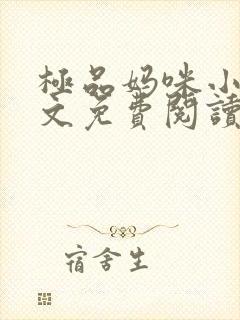 極品妈咪小
文免費閱讀
宿舍生